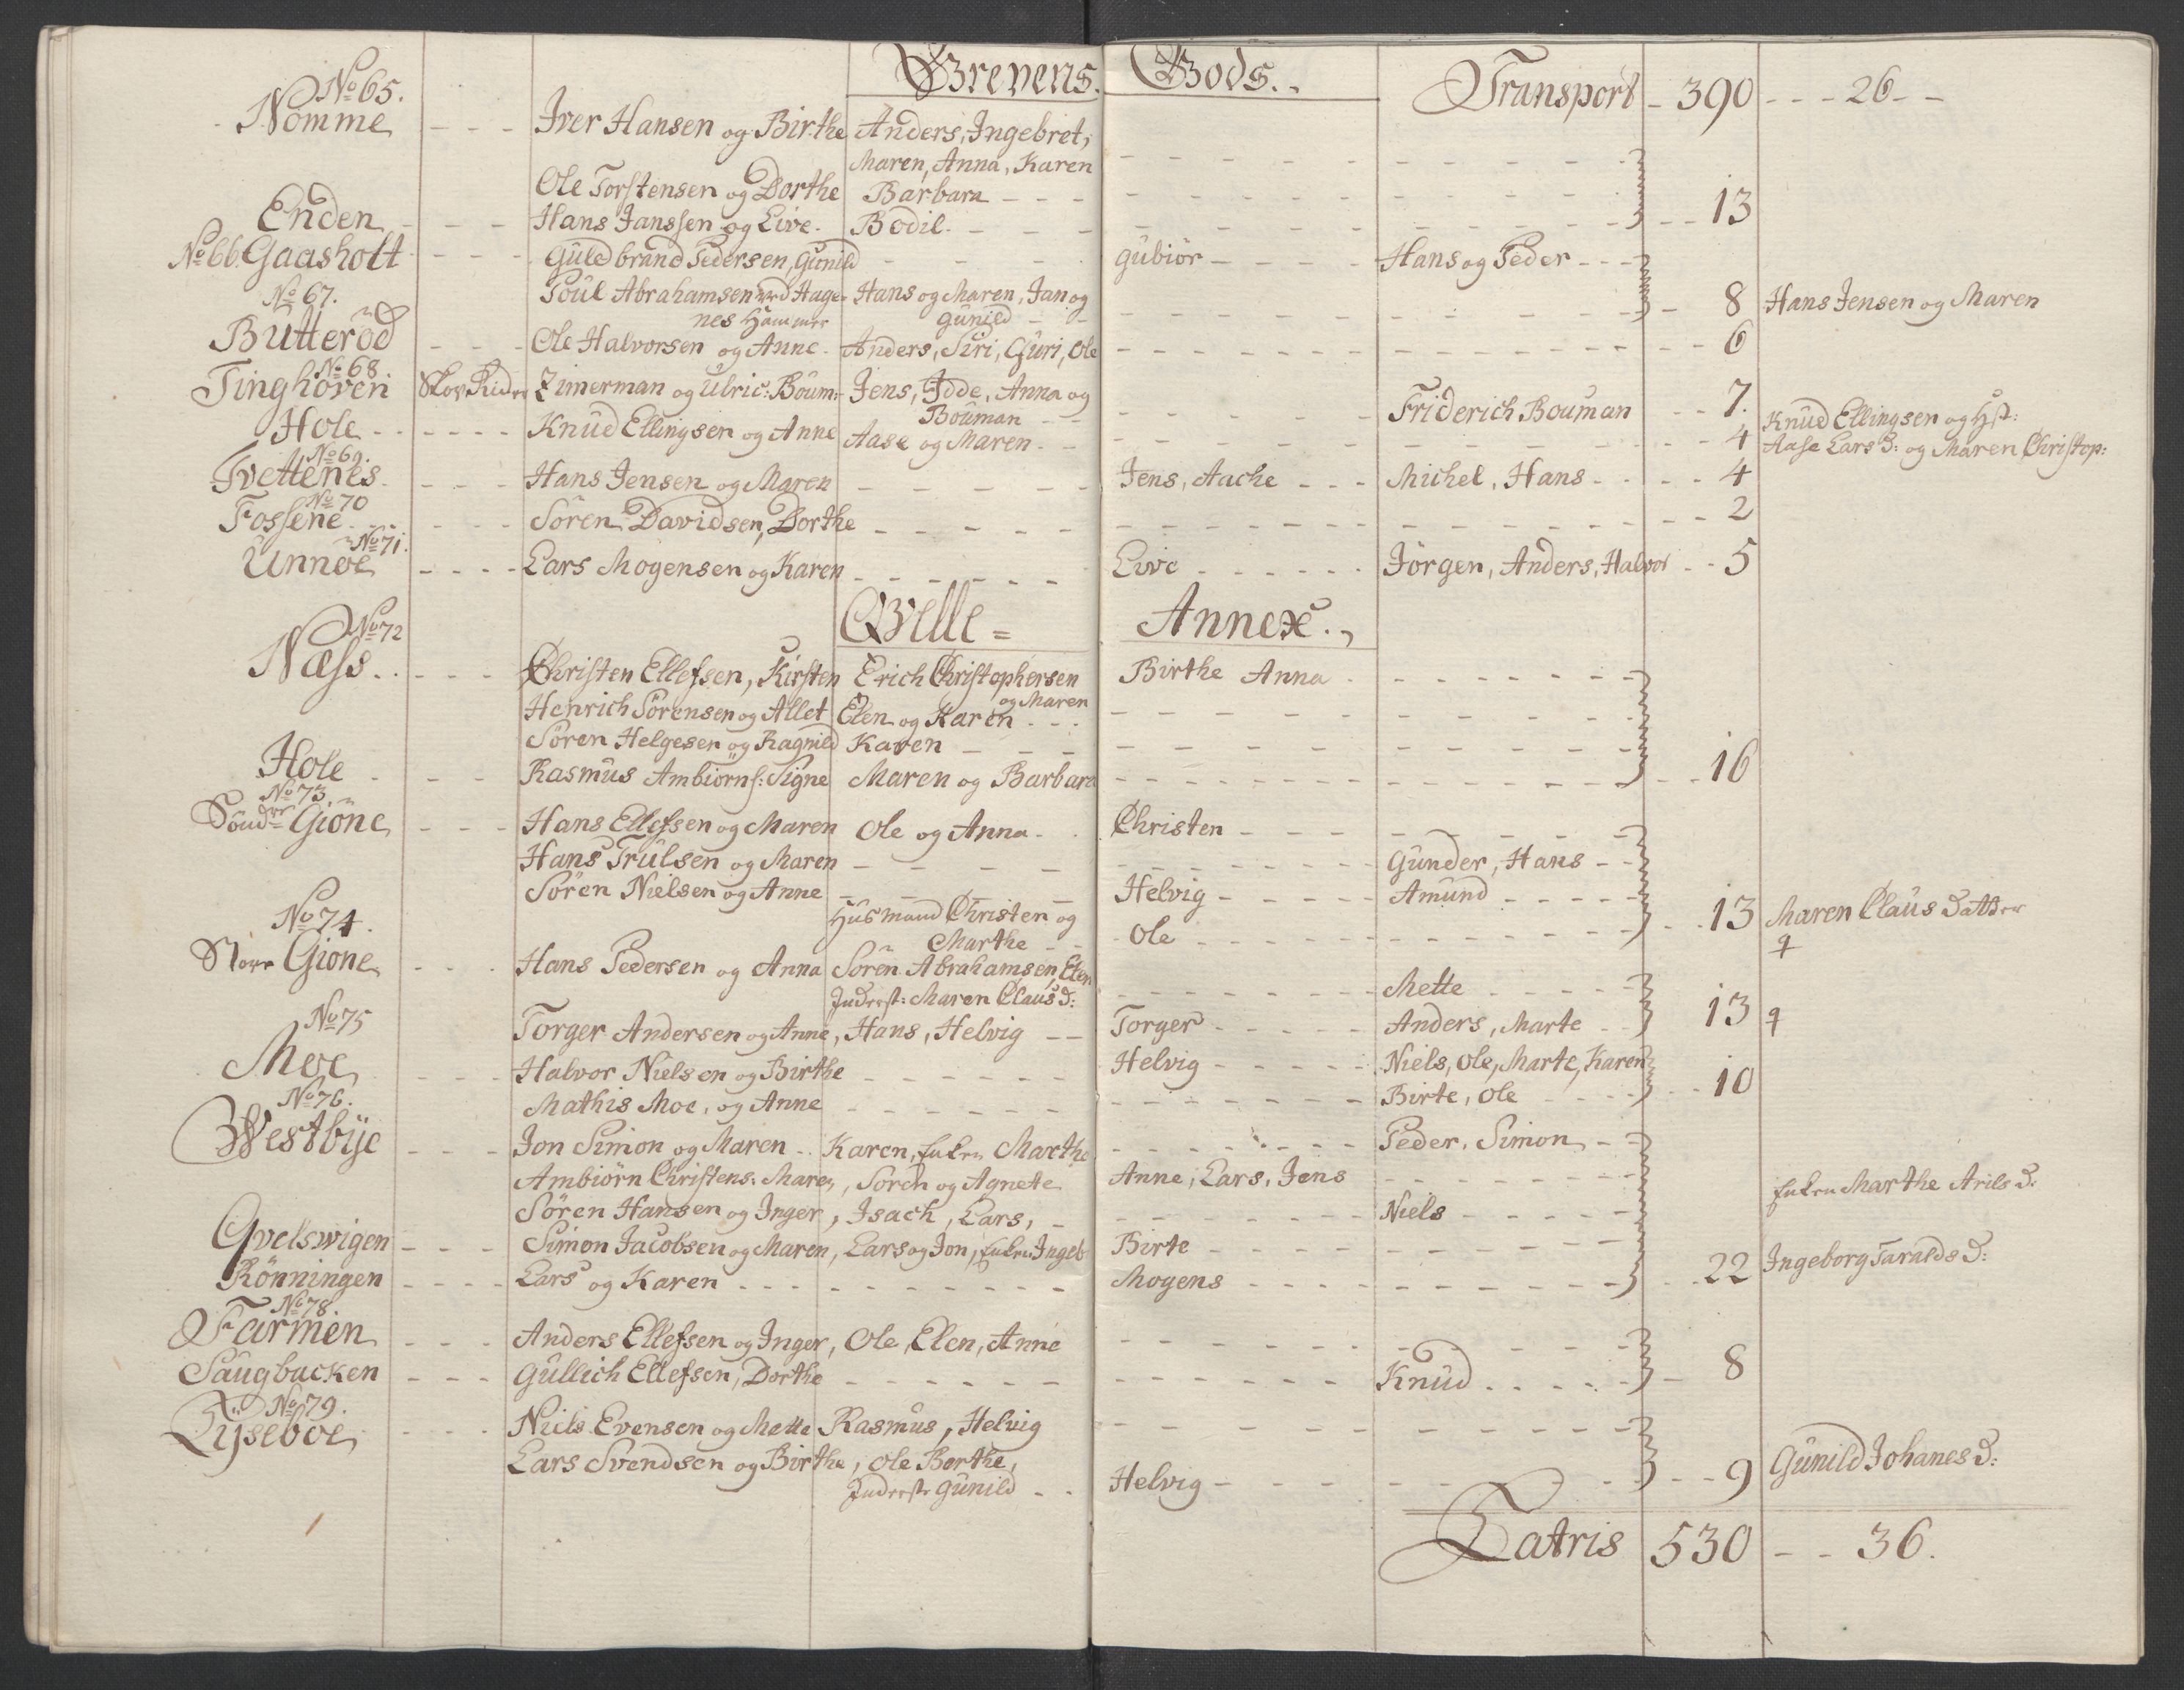 Grevens Gods.
Transport 390 26
No 65.
Nomme Iver Hansen og Birthe Anders, Ingebret,
Maren, Anna, Karen
Ole Torstensen og Dorthe Barbara 13
Enden Hans Janssen og Live. Bodil.
No 66. Gaasholt Guldbrand Pedersen, Gunild gubiör Hans og Peder
No 67. Poul Abrahamsen ved Hage= Hans og Maren, Jan og 8 Hans Jensen og Maren
nes Hammer gunild
Butteröd Ole Halvorsen og Anne. Anders, Siri, Guri, Ole 6
No 68.
Tinghoven Skov Rider Zimerman og Ulric: Boum= Jens, Idde, Anna og Friderich Bouman 7.
Bouman
Hole Knud Ellingsen og Anne Aase og Maren 4 Knud Ellingsen og Hst:
Aase Lars D: og Maren Christop:
No 69.
Tvettenes Hans Jensen og Maren Jens, Aache Michel, Hans 4
No 70
Fossene Sören Davidsen, Dorthe 2
No 71.
Unnoe Lars Mogensen og Karen Live Jörgen, Anders, Halvor 5
Qvelle = Annex.
No 72
Næss Christen Ellefsen, Kirsten Erich Christophersen Birthe Anna
og Maren
Henrich Sörensen og Allet Elen og Karen
Sören Helgesen og Ragnild Karen
Hole Rasmus Ambiörns: Signe Maren og Barbara 16
No 73.
Sönd re Giöne Hans Ellefsen og Maren Ole og Anna Christen
Hans Trulsen og Maren Gunder, Hans
Sören Nielsen og Anne Helvig Amund
Husmand Christen og 13 Maren Claus Datter
Marthe Ole
No 74.
Store Giöne Hans Pedersen og Anna Sören Abrahamsen, Elen
Inderst: Maren Claus D: Mette
No 75
Torger Andersen og Anne, Hans, Helvig Torger Anders, Marte 13
Moe Halvor Nielsen og Birthe Helvig Niels, Ole, Marte, Karen
Mathis Moe, og Anne Birte, Ole 10
No 76.
Westbÿe Jon Simon og Maren Karen, Enken Marthe Peder, Simon
Ambiörn Christens: Maren, Sören og Agnete Anne, Lars, Jens Enken Marthe Arils D:
Sören Hansen og Inger, Isach, Lars, Niels
Qvelswigen Simon Jacobsen og Maren, Lars og Jon, Enken Ingeb Birte
Rönningen Lars og Karen Mogens 22 Ingeborg Taralds D:
No 78.
Farmen Anders Ellefsen og Inger, Ole, Elen, Anne
Saugbacken Gullich Ellefsen, Dorthe Knud 8
No 79.
Lÿseboe Niels Evensen og Mette Rasmus, Helvig
Lars Svendsen og Birthe, Ole Berthe, 9 Gunild Johanes D:
Inderste Gunild Helvig
Latris 530 36.